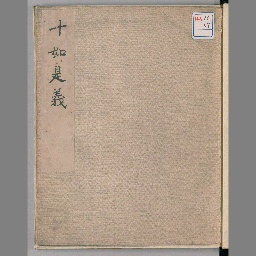 十如是義